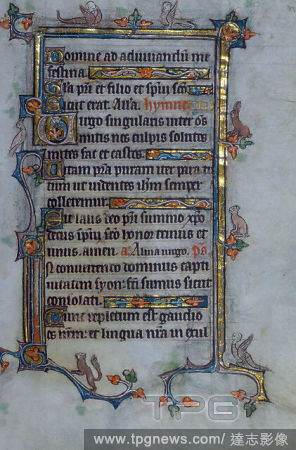 Domine ad adiuvandū me
festina.
Gła pr̄i et filio et spīui scō
sicut erat. Aña. hymnus
Virgo singularis inter os
mitis nos culpis solutos
mites fac et castos.
Vitam pra puram iter para tu
tum ut videntes ih̄m semper
colletemur.
Sit laus deo pr̄i summo xp̄o
decus spīui scō honor tribus et
unus. amen. a. Alma uirgo. p̄s.
In conuertendo dominus capti
uitatem syon: fc̄i sumus sicut
consolati.
Tunc repletum est gaudio
os nr̄m: et lingua nr̄a in exul
TPG
www.tpgnews.com / 達志影像